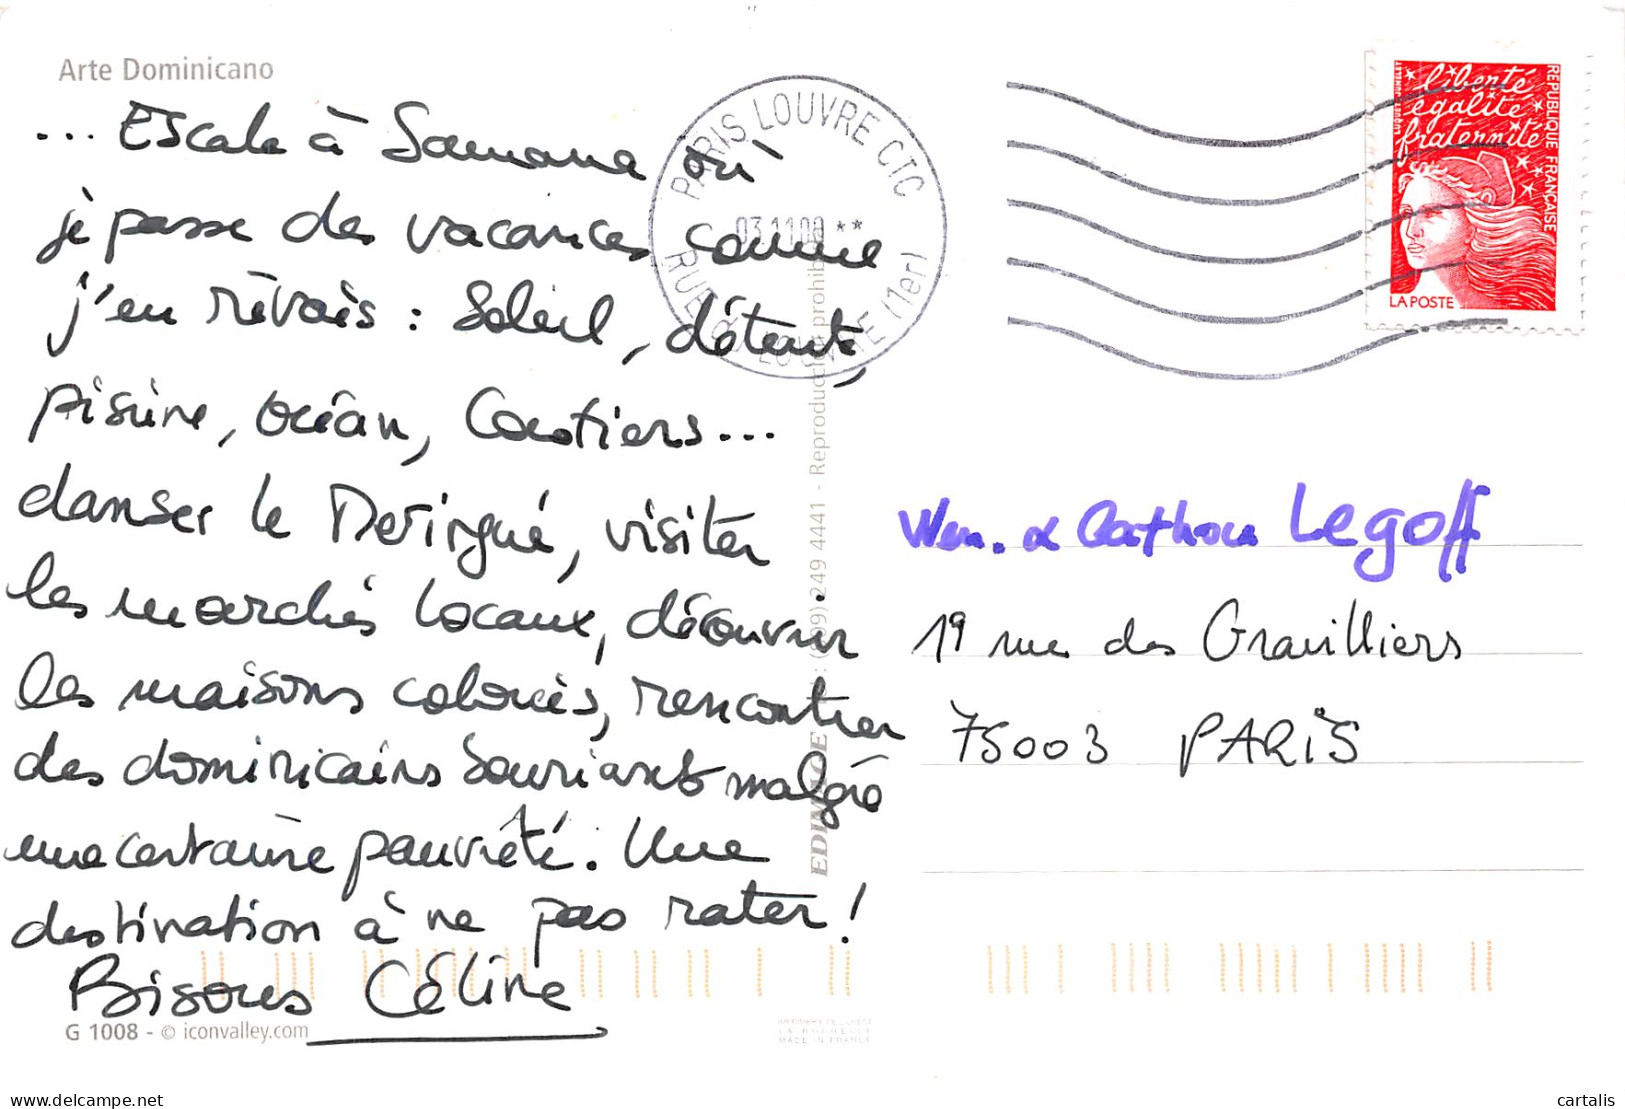 Arte Dominicano
... Escale à Samana où
je passe des vacances comme
j'en rêvais : Soleil, détente,
piscine, océan, Cocotiers...
danser le Meringué, visiter
les marchés locaux, découvrir
les maisons colorées, rencontrer
des dominicains souriants malgré
une certaine pauvreté. Une
destination à ne pas rater !
Bisous Céline
G 1008 - © iconvalley.com
EDIMAGE : (809) 249 4441 - Reproducción prohibida
PARIS LOUVRE CTC
03.11.00 **
RUE DU LOUVRE (1er)
liberté
égalité
fraternité
REPUBLIQUE FRANÇAISE
LA POSTE
& Legoff
19 rue des Gravilliers
75003 PARIS
MADE IN FRANCE
cartalis